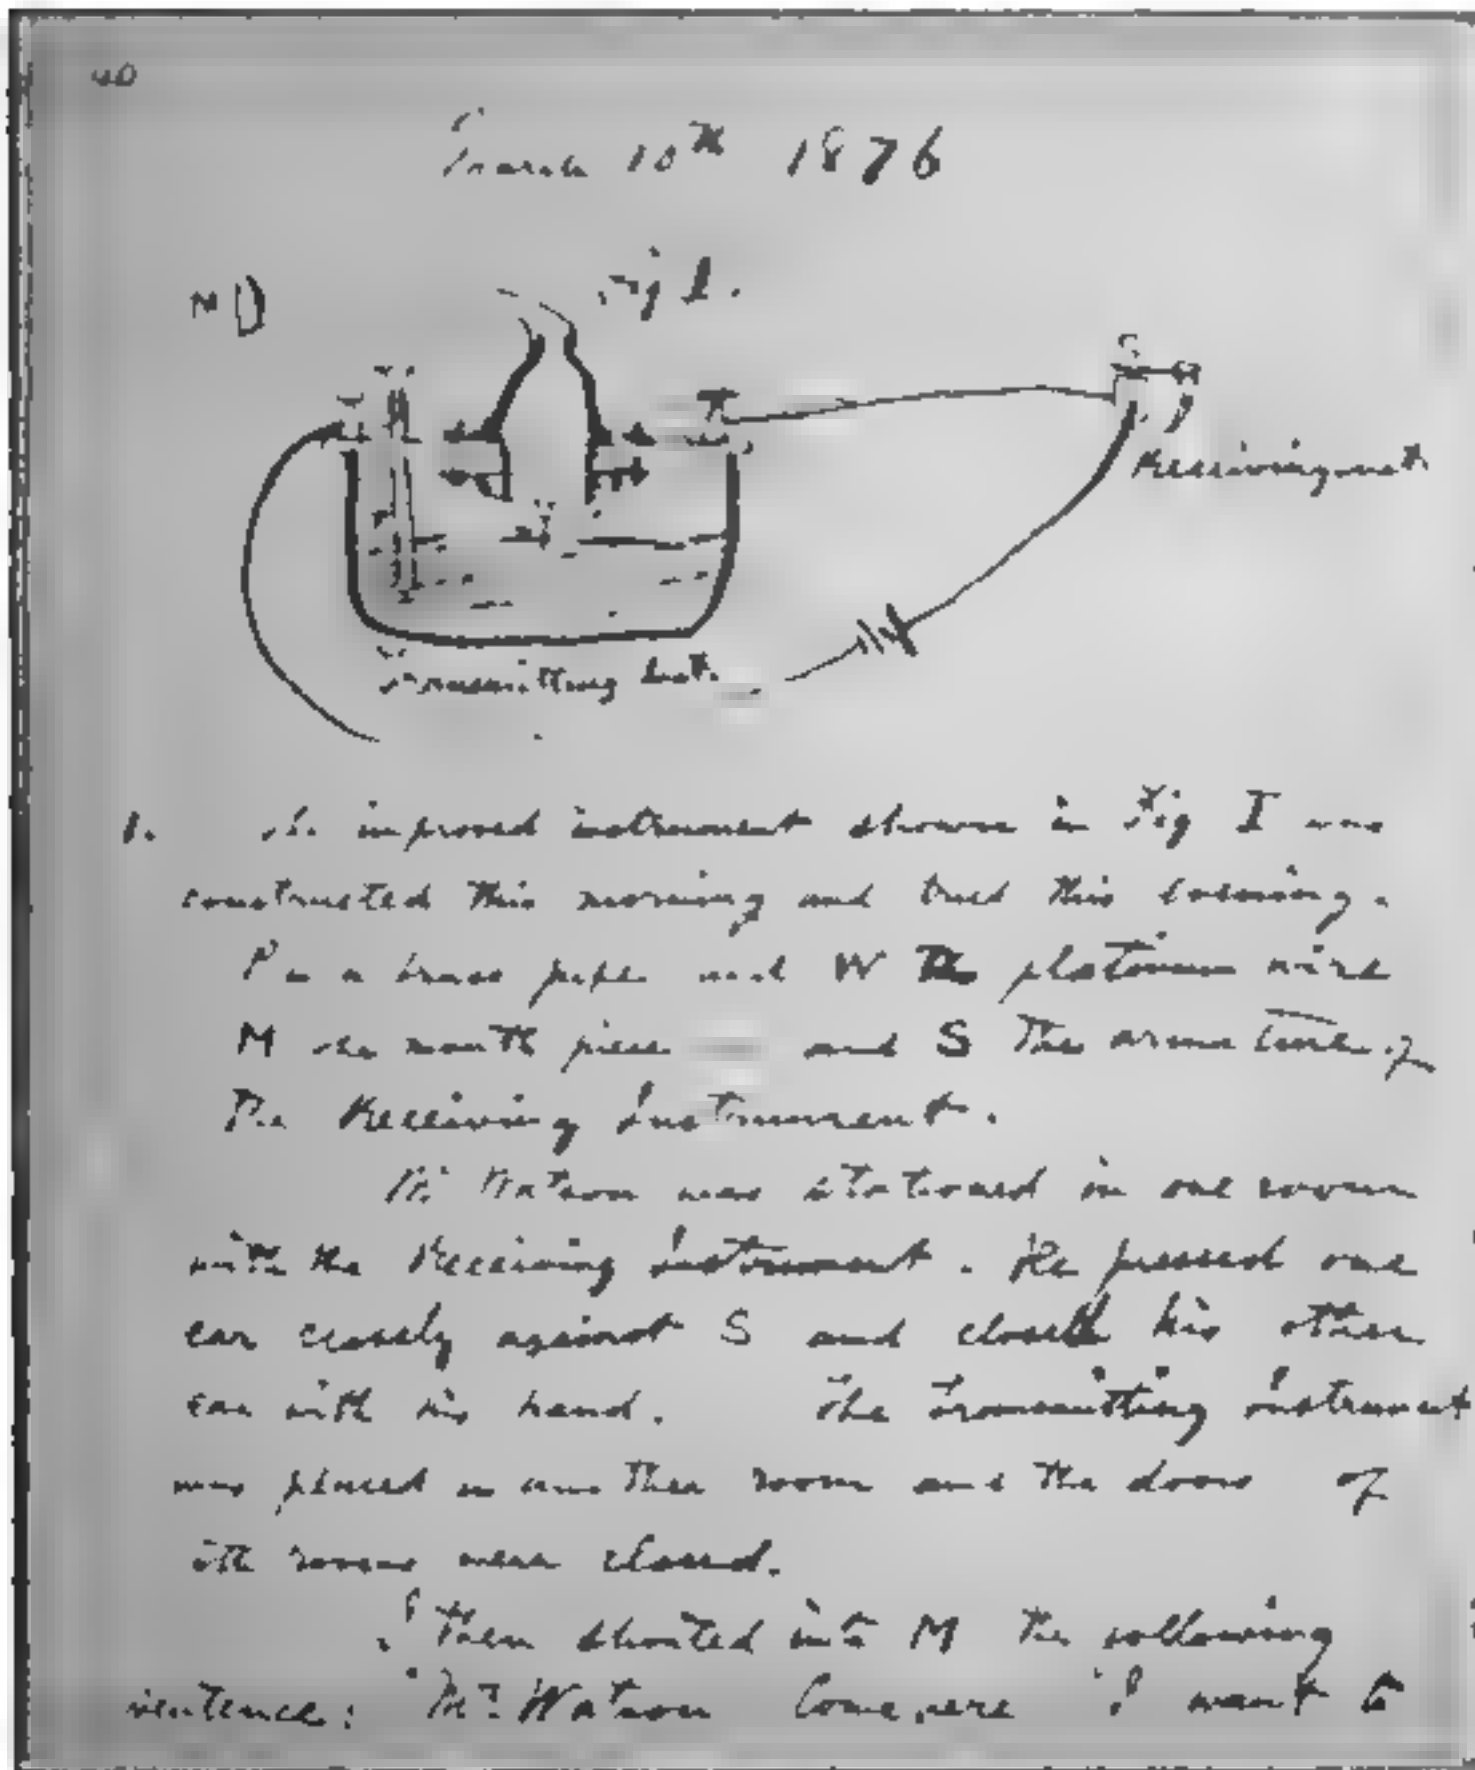 40
March 10th 1876
Fig 1.
M
Receiving Inst.
Transmitting Inst.
1. The improved instrument shown in Fig I was
constructed this morning and tried this evening.
P is a brass pipe and W The platinum wire
M the mouth piece and S The armature of
The Receiving Instrument.
Mr Watson was stationed in one room
with the Receiving Instrument. He pressed one
ear closely against S and closed his other
ear with his hand. The Transmitting Instrument
was placed in another room and the doors of
both rooms were closed.
I then shouted into M the following
sentence: "Mr. Watson Come here I want to